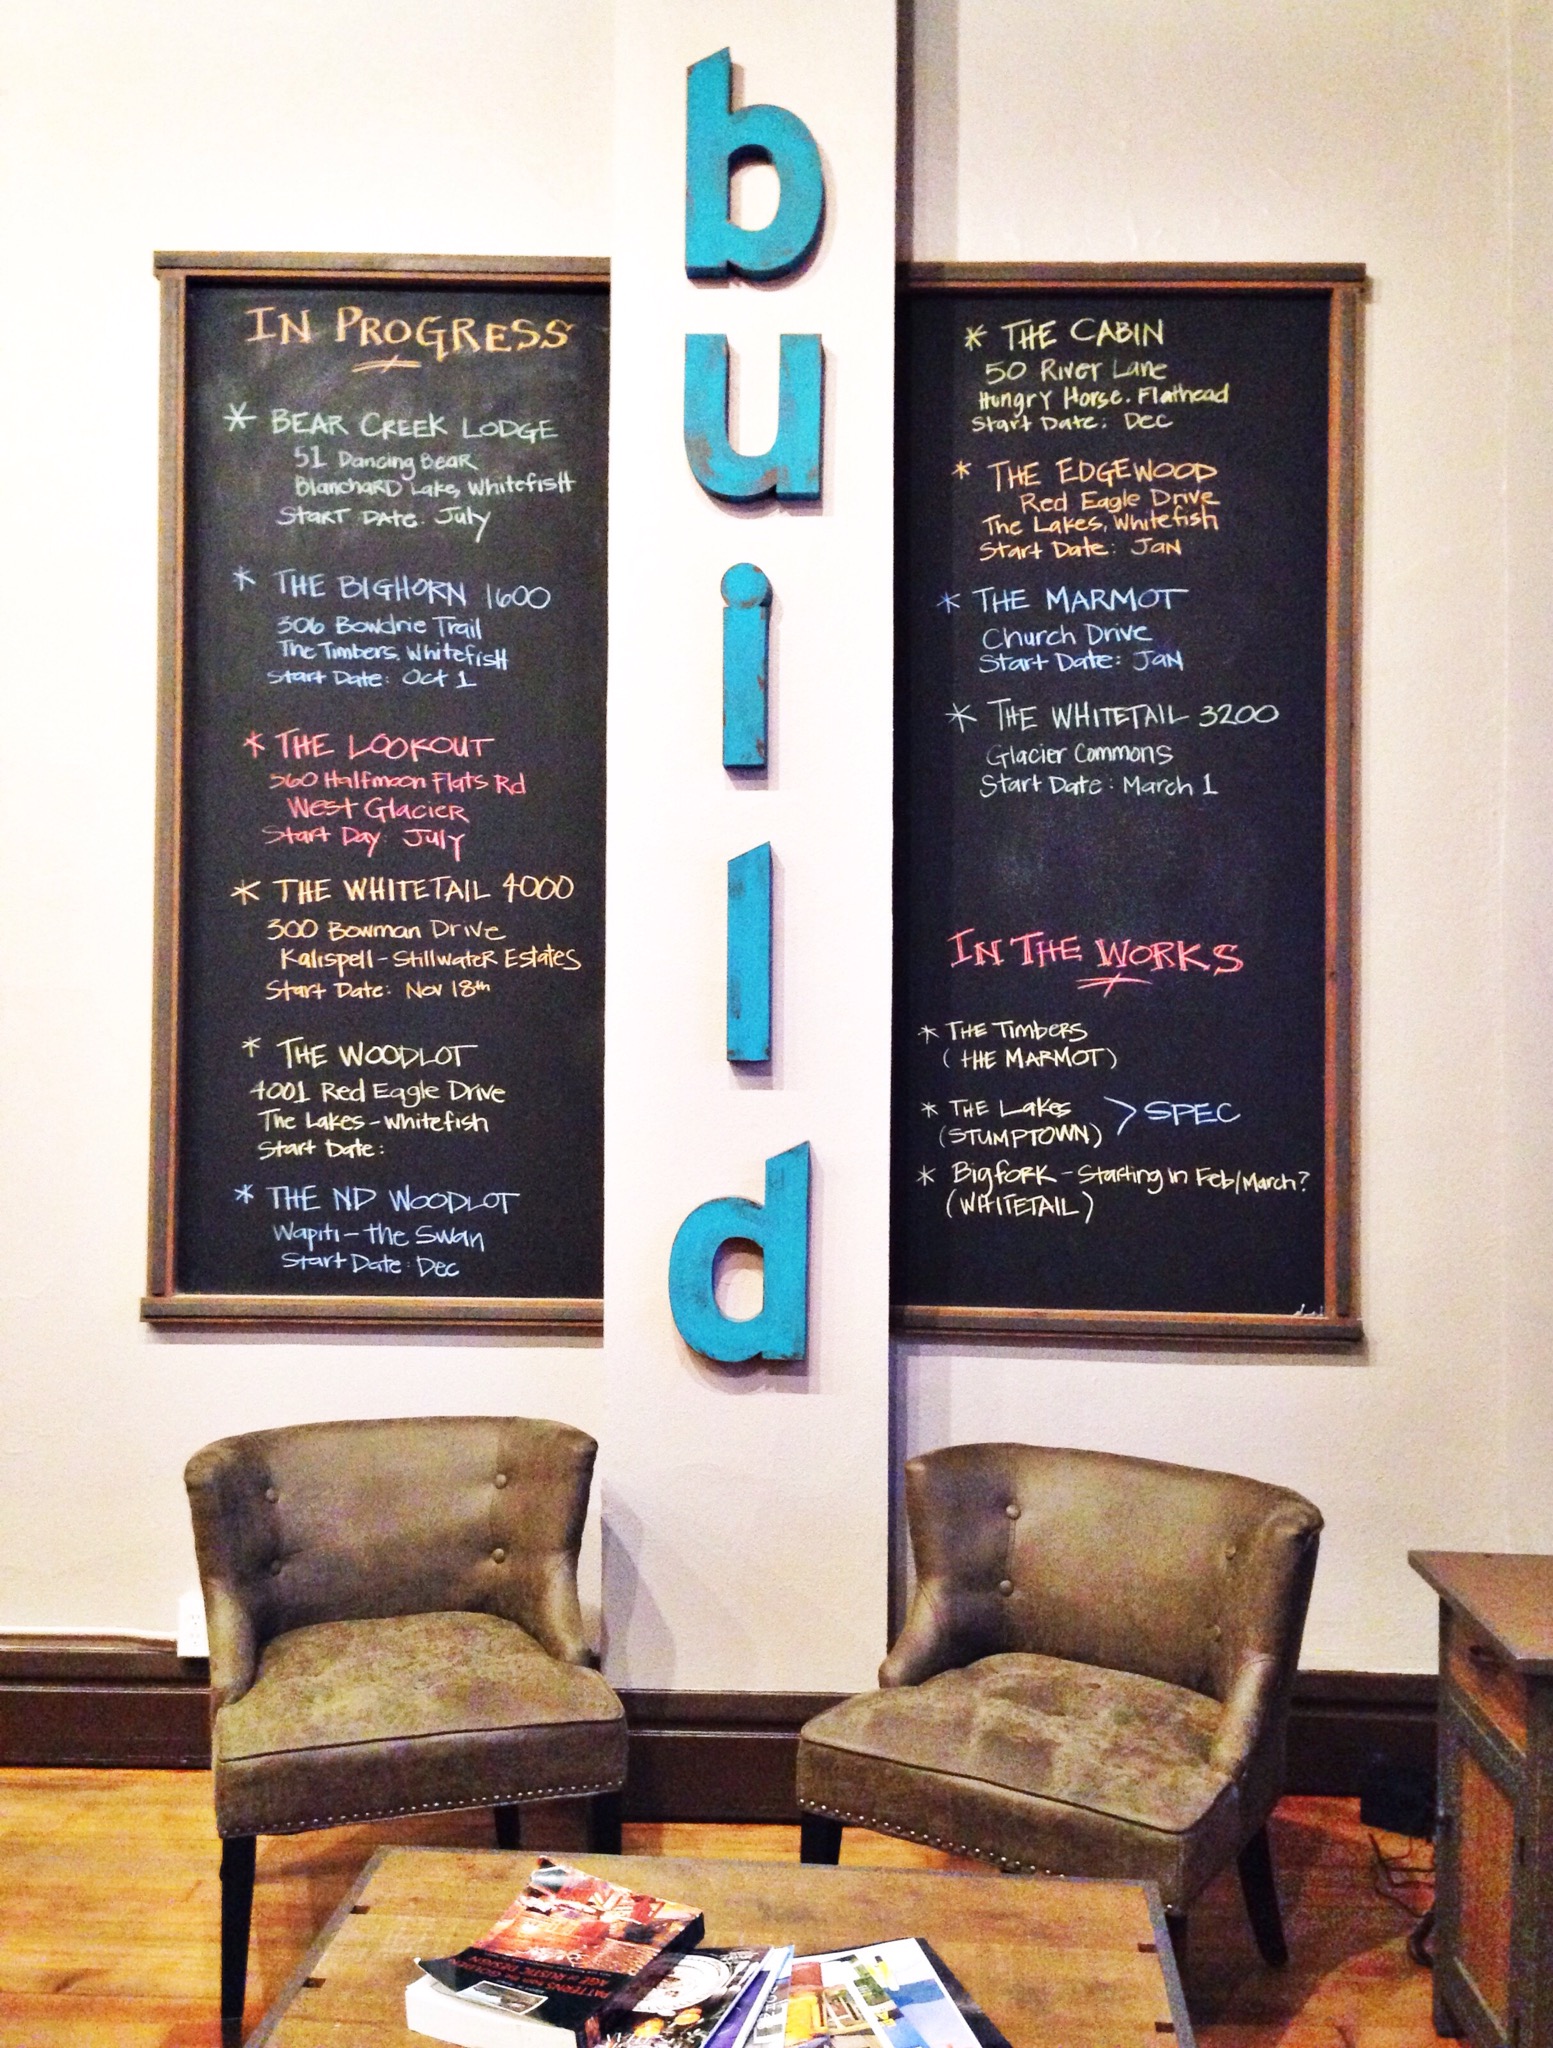 IN PROGRESS
* BEAR CREEK LODGE
51 Dancing Bear
Blanchard Lake, Whitefish
Start Date: July
* THE BIGHORN 1600
306 Bowdrie Trail
The Timbers, Whitefish
Start Date: Oct 1
* THE LOOKOUT
560 Halfmoon Flats Rd
West Glacier
Start Day: July
* THE WHITETAIL 4000
300 Bowman Drive
Kalispell - Stillwater Estates
Start Date: Nov 18th
* THE WOODLOT
4001 Red Eagle Drive
The Lakes - Whitefish
Start Date:
* THE ND WOODLOT
Wapiti - the Swan
Start Date: Dec
build
* THE CABIN
50 River Lane
Hungry Horse, Flathead
Start Date: Dec
* THE EDGEWOOD
Red Eagle Drive
The Lakes, Whitefish
Start Date: Jan
* THE MARMOT
Church Drive
Start Date: Jan
* THE WHITETAIL 3200
Glacier Commons
Start Date: March 1
IN THE WORKS
* THE Timbers
(THE MARMOT)
* THE Lakes > SPEC
(STUMPTOWN)
* Bigfork - Starting in Feb/March?
(WHITETAIL)